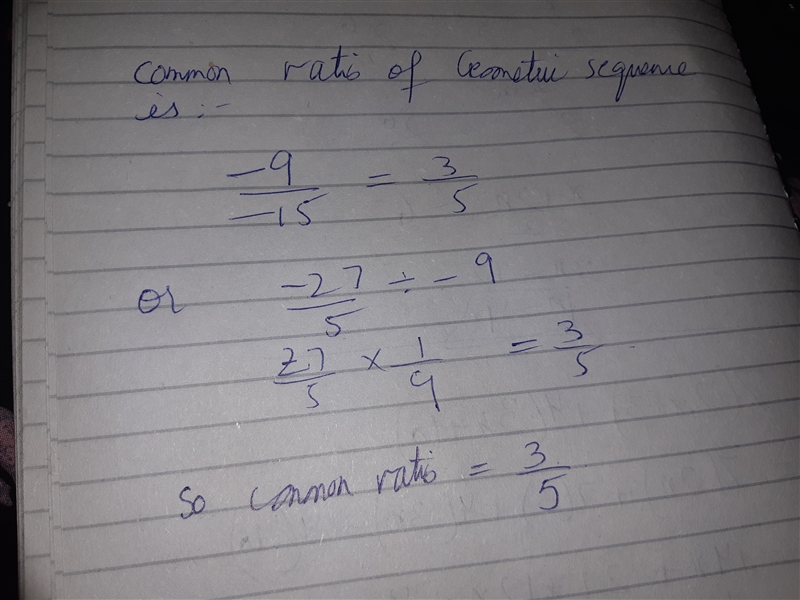 common ratio of Geometric sequence
is :-
-9/-15 = 3/5
or -27/5 ÷ -9
27/5 × 1/9 = 3/5
so common ratio = 3/5